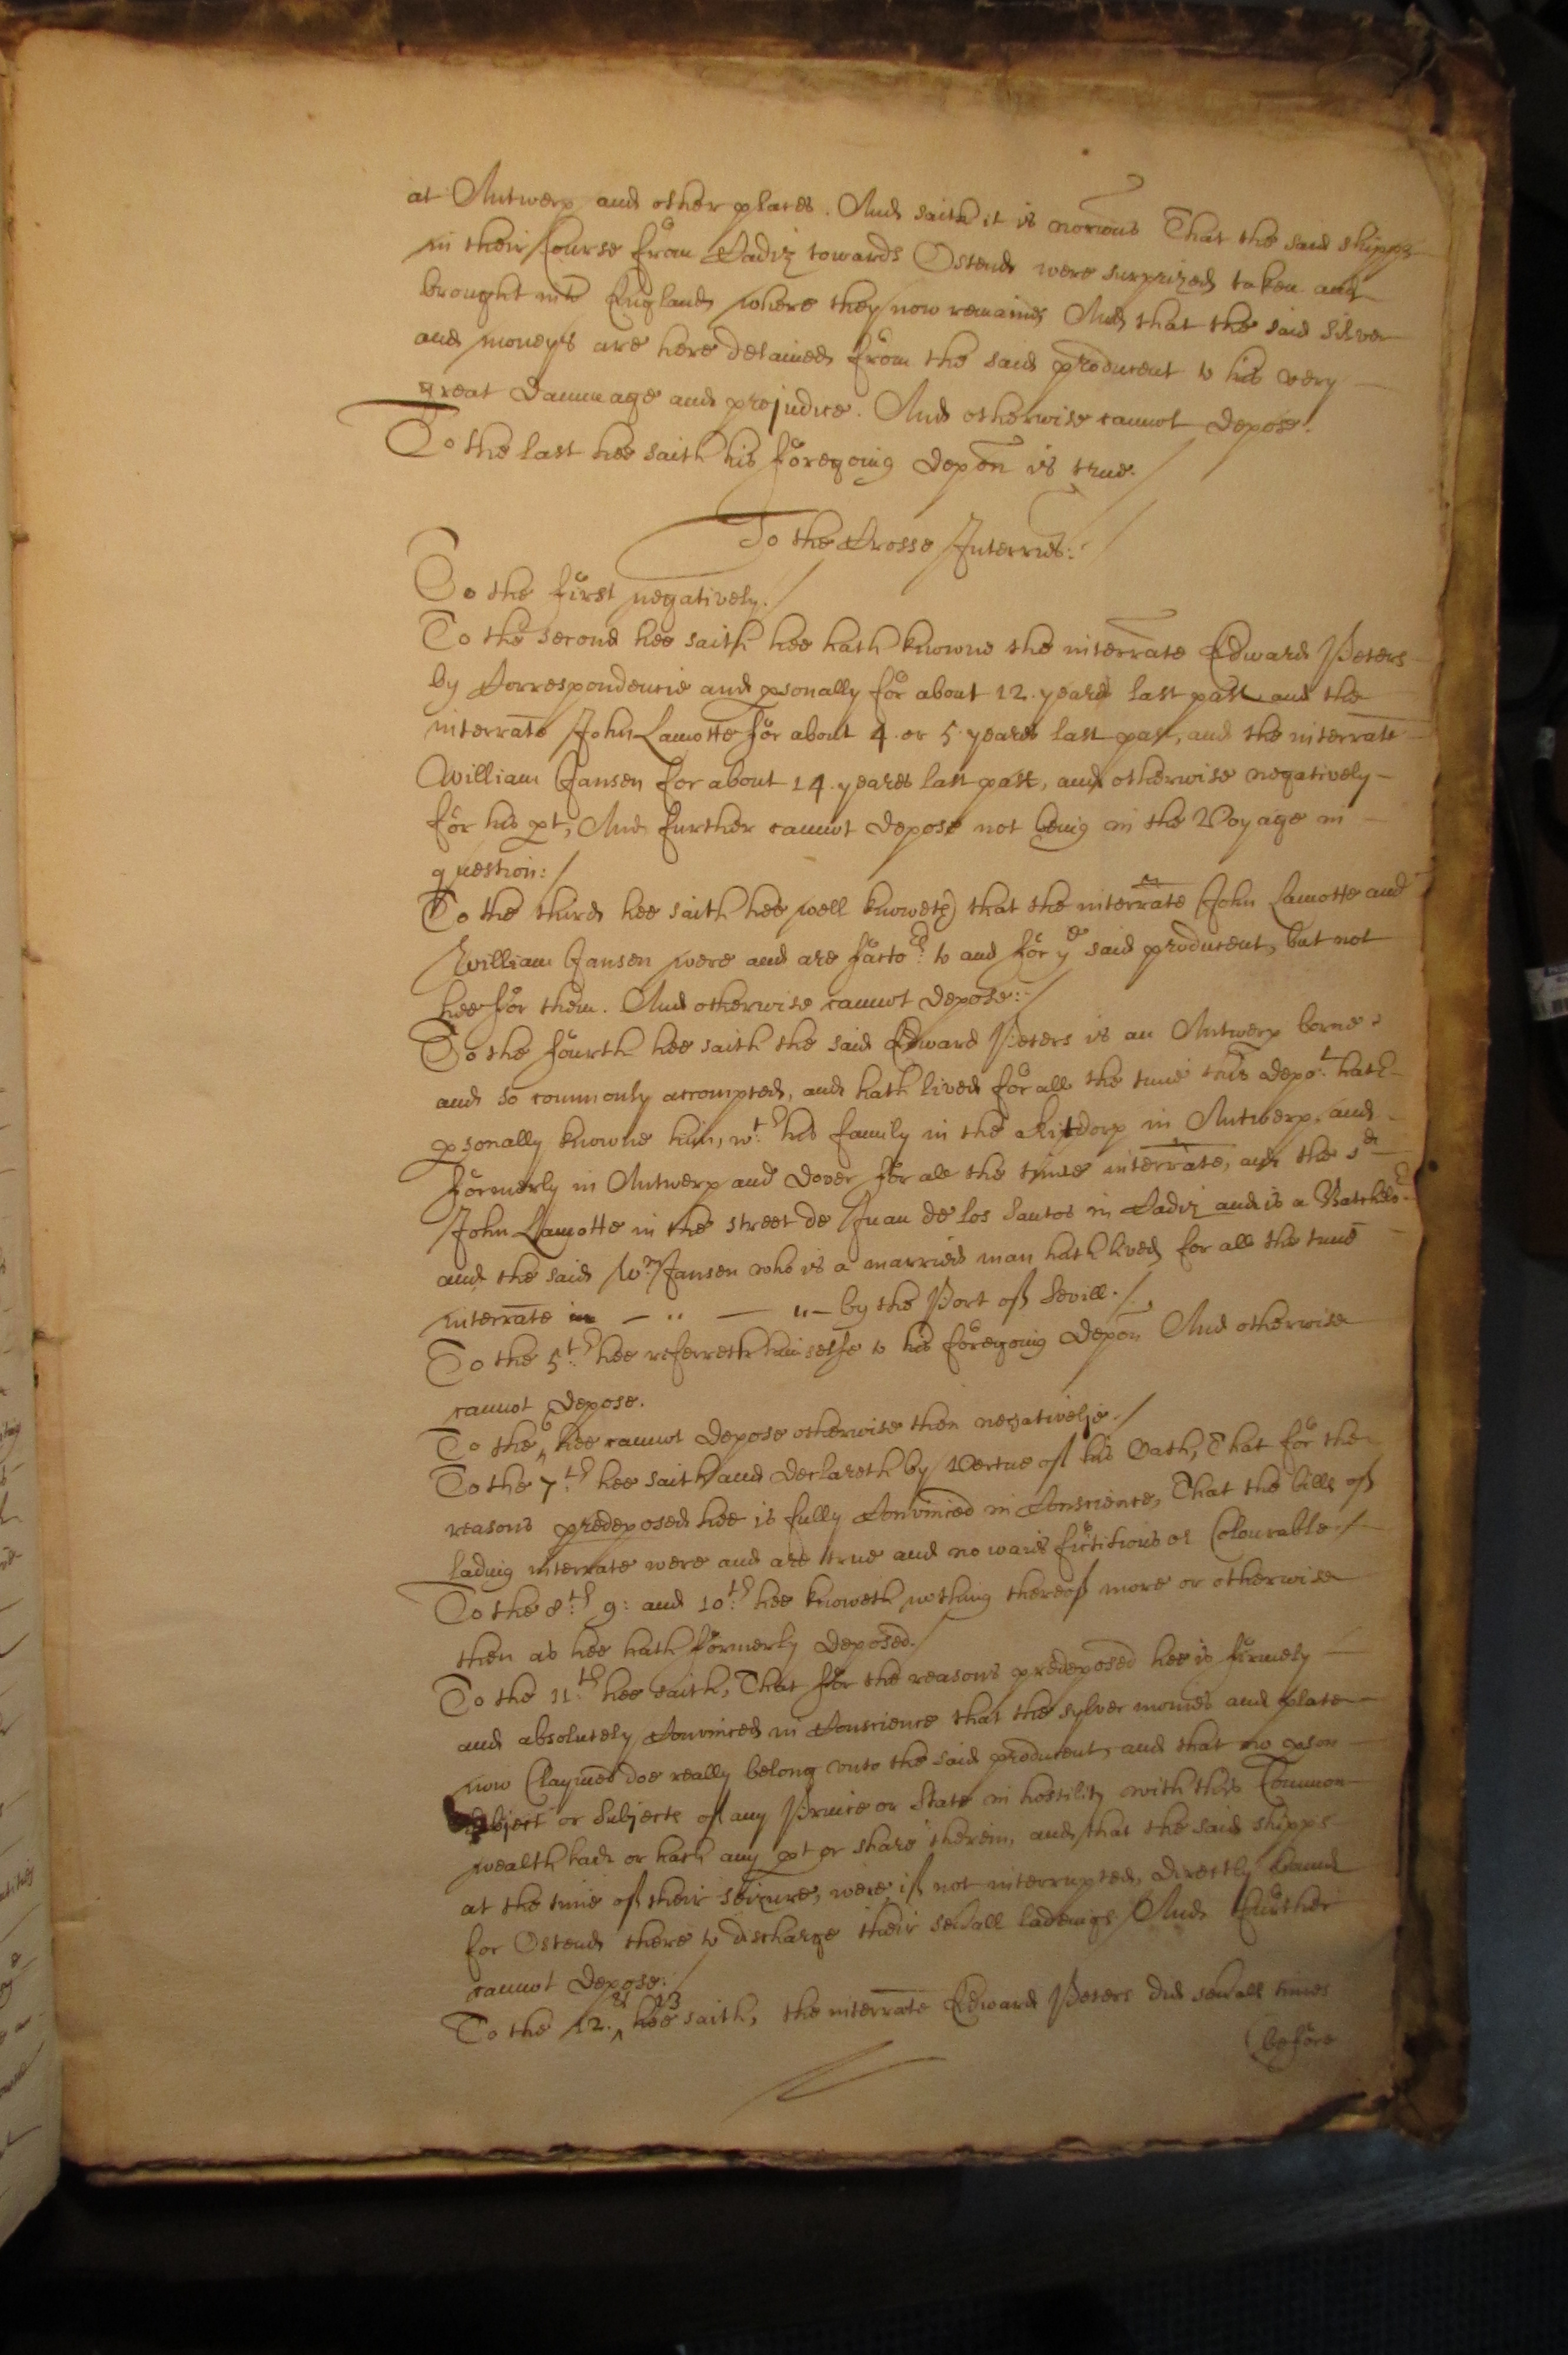 at Antwerp and other places. And saith it is notorious That the said shipps
in their Course from Cadiz towards Ostend were surprized taken and
brought into England where they now remaine And that the said silver
and moneys are here detained from the said producent to his very
great Dammage and prejudice. And otherwise cannot depose.
To the last hee saith his foregoing depon is true./
To the Crosse Interries:/
To the first negatively./
To the second hee saith hee hath knowne the interrate Edward Peters
by Correspondencie and psonally for about 12. yeares last past and the
interrate John Lamotte for about 4. or 5. yeares last past, and the interrate
William Jansen for about 14. yeares last past, and otherwise negatively
for his pt, And further cannot depose not being in the Voyage in
question:/
To the third hee saith hee well knoweth that the interrate John Lamotte and
William Jansen were and are factors to and for ye said producent, but not
hee for them. And otherwise cannot depose:/
To the fourth hee saith the said Edward Peters is an Antwerp borne
and so commonly accompted, and hath lived for all the time this depot hath
psonally knowne him, wth his family in the Kipdorp in Antwerp, and
formerly in Antwerp and Dover for all the time interrate, and the sd
John Lamotte in the street de Juan de los Santos in Cadiz and is a Batchelor
and the said Wm Jansen who is a married man hath lived for all the time
interrate in - " - " - by the Port of Sevill./
To the 5th hee referreth himselfe to his foregoing depon And otherwise
cannot depose.
To the 6 hee cannot depose otherwise then negativelie./
To the 7th hee saith and declareth by Vertue of his Oath, That for the
reasons predeposed hee is fully Convinced in Conscience, That the bills of
lading interrate were and are true and no waies fictitious or Colourable./
To the 8th 9: and 10th hee knoweth nothing thereof more or otherwise
then as hee hath formerly deposed./
To the 11th hee saith, That for the reasons predeposed hee is firmely
and absolutely Convinced in Conscience that the sylver monies and plate
now Claymed doe really belong unto the said producent, and that no pson
subject or Subjects of any Prince or State in hostility with this Common
wealth hath or hath any pt or share therein, and that the said shipps
at the time of their seizure, were if not interrupted, directly bound
for Ostend there to discharge their sevall ladeings And further
cannot depose:/
To the 12. & 13 hee saith, the interrate Edward Peters did sevall times
before